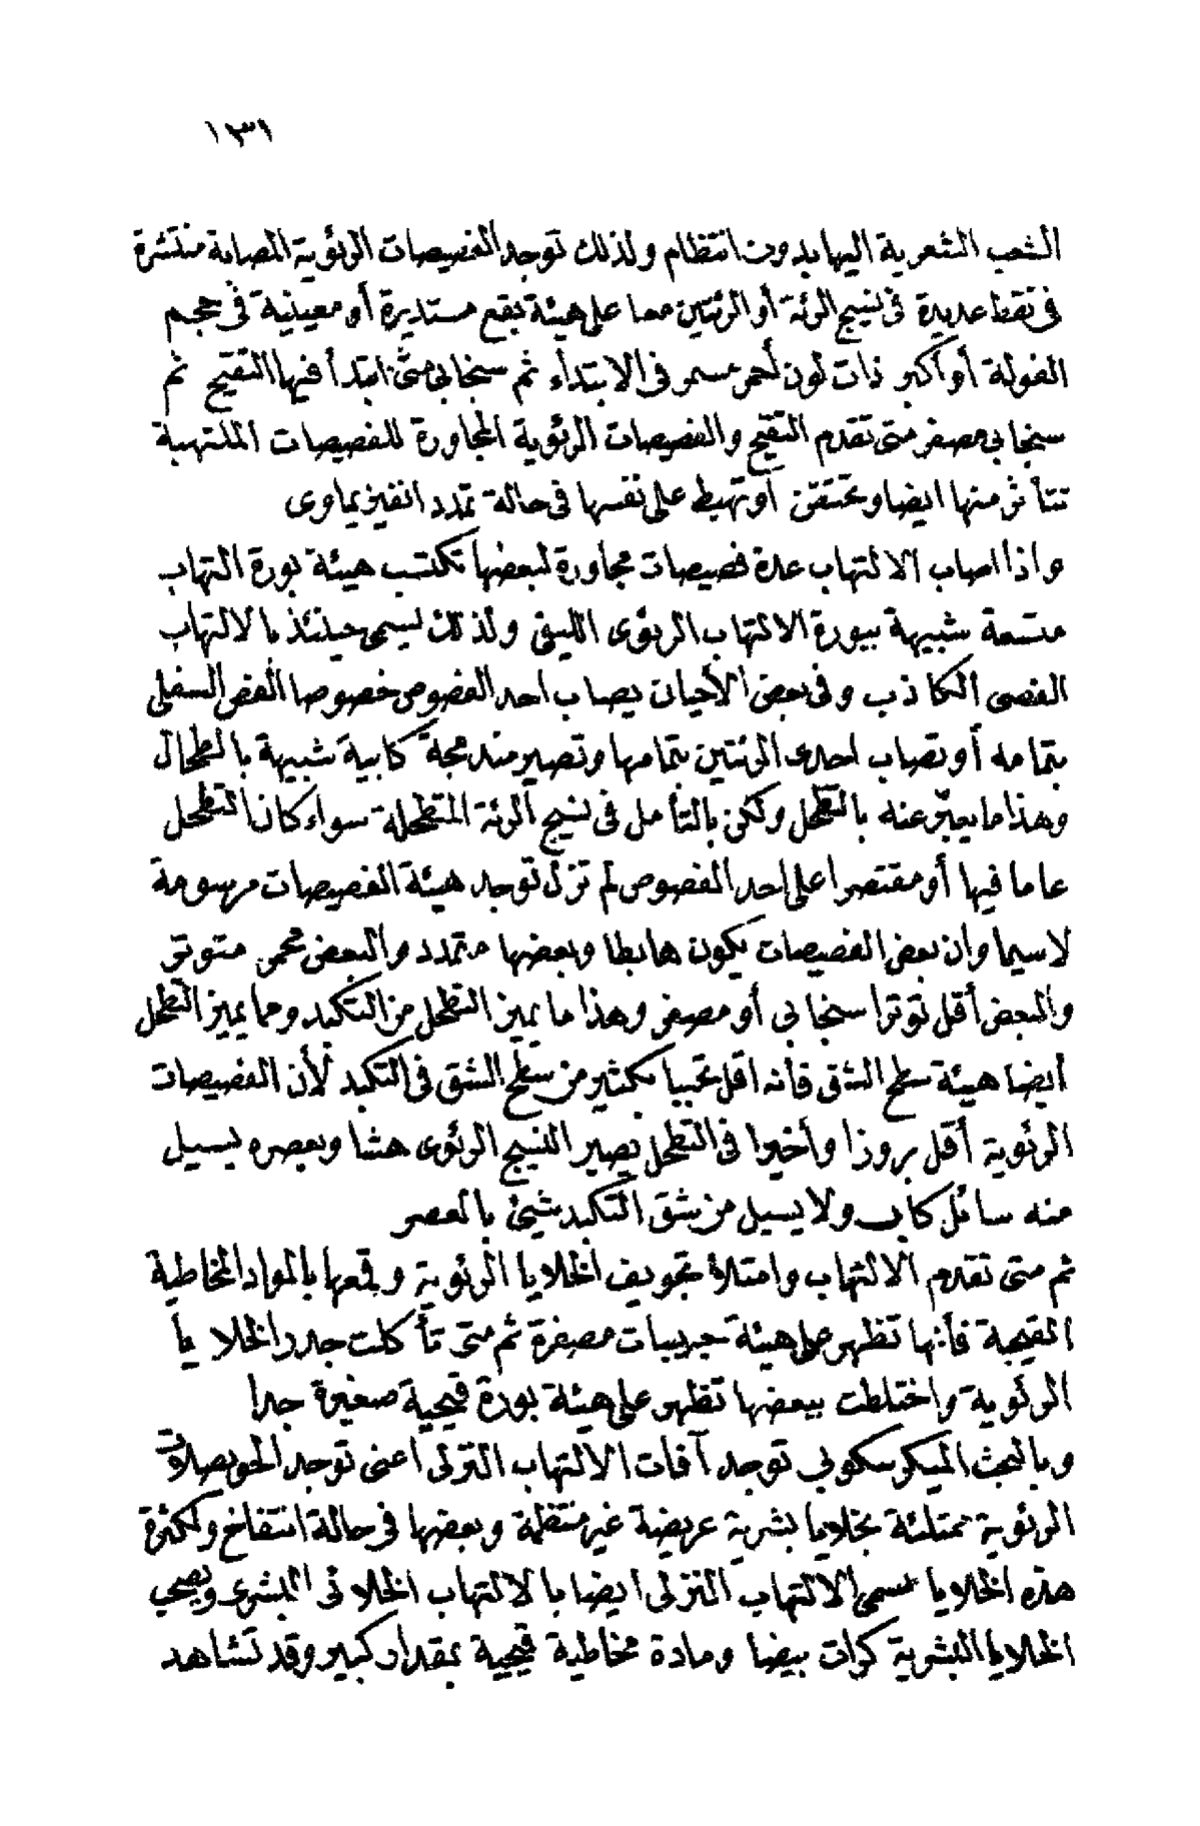 ١٣١
الشعب الشعرية اليها بدون انتظام ولذلك توجد الفصيصات الرئوية المصابة منتشرة
فى نقط عديدة فى نسيج الرئة أو الرئتين معا على هيئة بقع مستديرة أو معينية فى حجم
الفولة أو أكبر ذات لون أحمر مسمر فى الابتداء ثم سنجابى متى ابتدأ فيها التقيح ثم
سنجابى مصفر متى تقدم التقيح والفصيصات الرئوية المجاورة للفصيصات الملتهبة
تتأثر منها ايضا وتحتقن أو تهبط على نفسها فى حالة تمدد انفيزيماوى
واذا اصاب الالتهاب عدة فصيصات مجاورة لبعضها تكتسب هيئة بورة التهاب
متسعة شبيهة ببورة الالتهاب الرئوى الليفى ولذلك يسمى حينئذ بالالتهاب
الفصى الكاذب وفى بعض الأحيان يصاب احد الفصوص خصوصا الفص السفلى
بتمامه أو تصاب احدى الرئتين بتمامها وتصير مندمجة كابية شبيهة بالطحال
وهذا ما يعبر عنه بالتطحل ولكن بالتأمل فى نسيج الرئة المتطحلة سواء كان التطحل
عاما فيها أو مقتصرا على احد الفصوص لم تزل توجد هيئة الفصيصات مرسومة
لاسيما وان بعض الفصيصات يكون هابطا وبعضها متمدد والبعض محمر متوتر
والبعض أقل توترا سنجابى أو مصفر وهذا ما يميز التطحل من التكبد ومما يميز التطحل
ايضا هيئة سطح الشق فأنه اقل تحببا بكثير من سطح الشق فى التكبد لأن الفصيصات
الرئوية أقل بروزا وأخيرا فى التطحل يصير النسيج الرئوى هشا وبعصره يسيل
منه سائل كاب ولا يسيل من شق التكبد شيئ بالعصر
ثم متى تقدم الالتهاب وامتلأ تجويف الخلايا الرئوية وقمعها بالمواد المخاطية
القيحية فأنها تظهر على هيئة حبيبات مصفرة ثم متى تأكلت جدر الخلايا
الرئوية واختلطت ببعضها تظهر على هيئة بورة قيحية صغيرة جدا
وبالبحث الميكرسكوبى توجد آفات الالتهاب النزلى اعنى توجد الحويصلات
الرئوية ممتلئة بخلايا بشرية عريضة غير منتظمة وبعضها فى حالة انتفاخ ولكثرة
هذه الخلايا سمى الالتهاب النزلى ايضا بالالتهاب الخلائى البشرى ويصحب
الخلايا البشرية كرات بيضا ومادة مخاطية قيحية بمقدار كبير وقد تشاهد